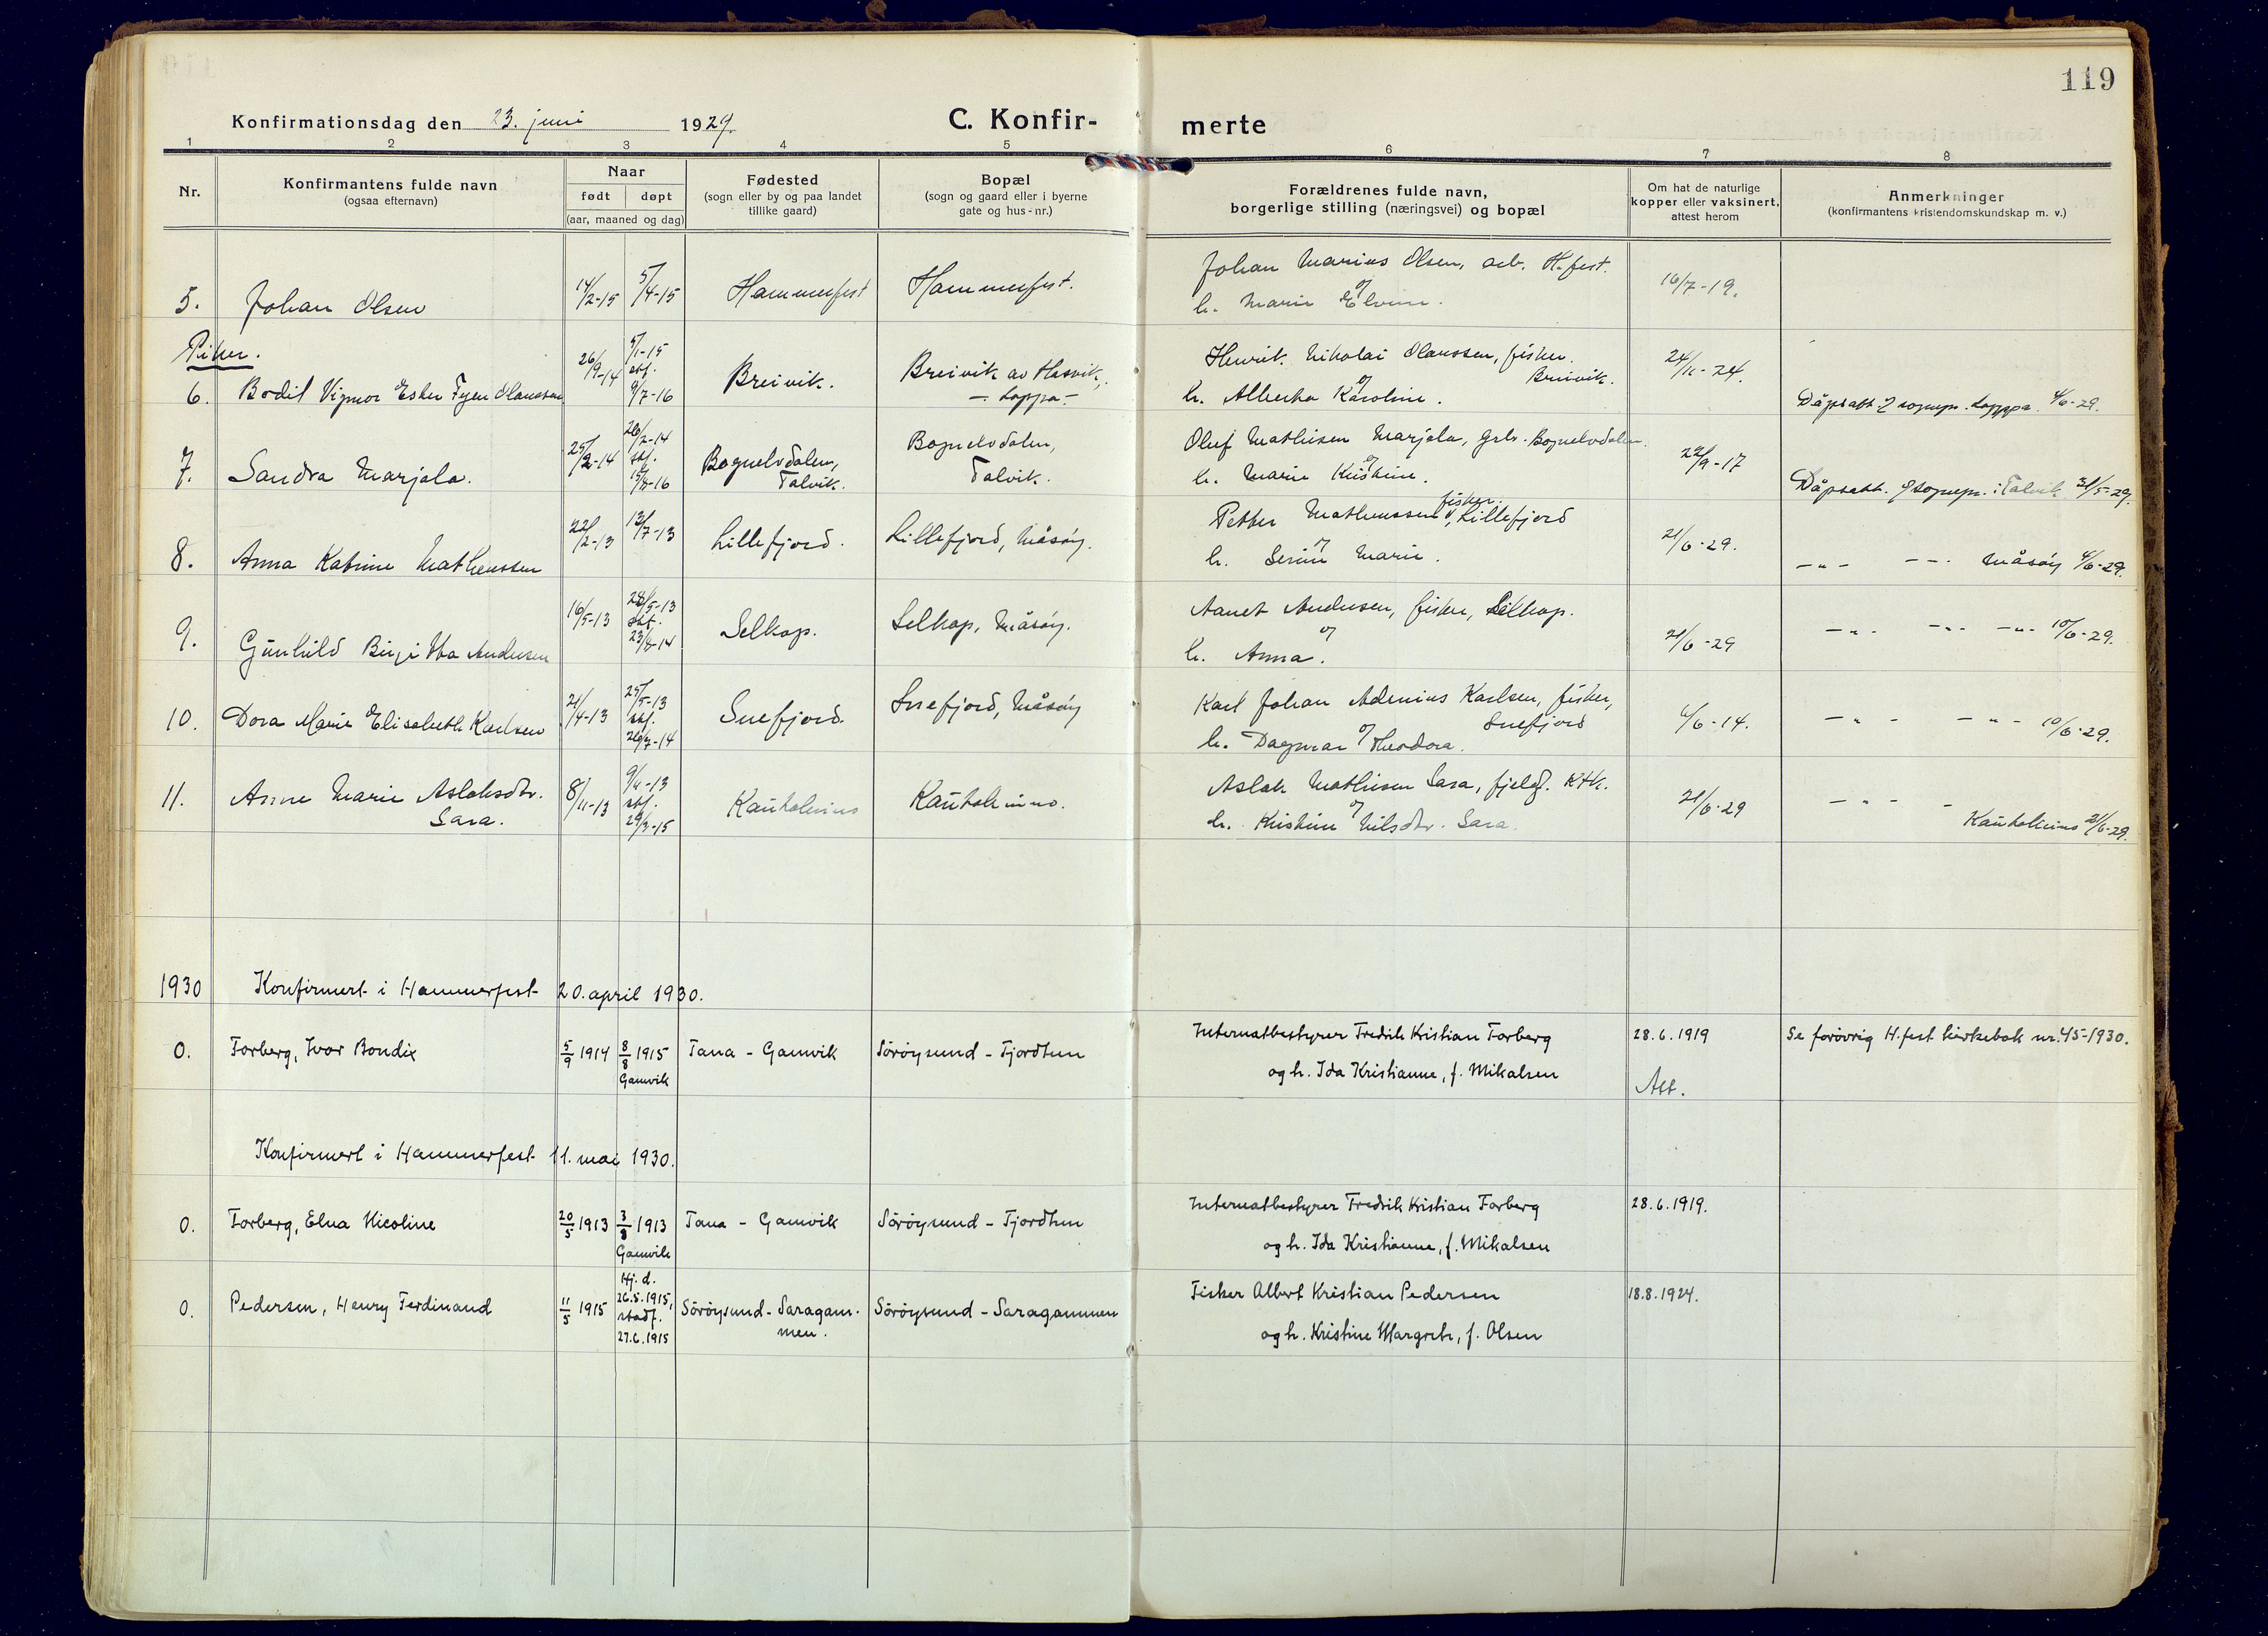 119
Konfirmationsdag den 23. juni 1929. C. Konfir- merte
1 2 3 4 5 6 7 8
Nr.
Konfirmantens fulde navn
(ogsaa efternavn)
Naar
født døpt
(aar, maaned og dag)
Fødested
(sogn eller by og paa landet
tillike gaard)
Bopæl
(sogn og gaard eller i byerne
gate og hus-nr.)
Forældrenes fulde navn,
borgerlige stilling (næringsvei) og bopæl
Om hat de naturlige
kopper eller vaksinert,
attest herom
Anmerkninger
(konfirmantens kristendomskundskap m. v.)
5. Johan Olsen 14/2-15 5/4-15 Hammerfest Hammerfest.
Johan Marius Olsen, arb. H.fest.
og
h. Marie Elvine. 16/7-19.
Piker.
6. Bodil Vigmor Ester Fyen Olaussen 26/9-14 5/1-15 stf. 9/7-16 Breivik. Breivik av Hasvik,
- Loppa -
Henrik Nikolai Olaussen, fisker.
Breivik.
og
h. Alberta Karoline. 24/11-24. Dåpsatt. f sognepr. Loppa. 4/6-29.
7. Sandra Marjala. 25/2-14 26/2-14 stf. 15/8-16 Bognelvdalen,
Talvik. Bognelvdalen,
Talvik.
Oluf Mathisen Marjala, grbr. Bognelvdalen.
og
h. Marie Kristine. 22/9-17 Dåpsatt. f sognepr. i Talvik 31/5-29.
8. Anna Katrine Matheussen 22/2-13 13/7-13 Lillefjord. Lillefjord, Måsøy.
fisker.
Petter Matheussen, Lillefjord
og
h. Serine Marie. 21/6-29. -"- -"- Måsøy 4/6-29.
9. Gunhild Birgitta Andersen 16/5-13 28/5-13 stf. 23/8-14 Selkop. Selkop, Måsøy.
Aanet Andersen, fisker, Selkop.
og
h. Anna. 21/6-29 -"- -"- -"- 10/6-29.
10. Dora Marie Elisabeth Karlsen 21/4-13 25/5-13 stf. 26/7-14 Snefjord. Snefjord, Måsøy
Karl Johan Adenius Karlsen, fisker,
Snefjord
og
h. Dagmar Theodora. 4/6-14. -"- -"- 10/6-29.
11. Anne Marie Aslaksdtr.
Sara. 8/11-13 9/11-13 stf. 29/3-15 Kautokeino Kautokeino.
Aslak Mathisen Sara, fjeldf. Ktk.
og
h. Kristine Nilsdtr. Sara. 21/6-29 -"- -
Kautokeino 21/6-29.
1930 Konfirmert i Hammerfest 20. april 1930.
0. Forberg, Ivar Bondix 5/9 1914 8/8 1915
Gamvik Tana - Gamvik Sørøysund - Fjordtun
Internatbestyrer Fredrik Kristian Forberg
og h. Ida Kristianne, f. Mikalsen
28.6.1919
Att.
Se forøvrig H.fest kirkebok nr. 45-1930.
Konfirmert i Hammerfest 11. mai 1930.
0. Forberg, Elna Nicoline 20/5 1913 3/8 1913
Gamvik Tana - Gamvik Sørøysund - Fjordtun
Internatbestyrer Fredrik Kristian Forberg
og h. Ida Kristianne, f. Mikalsen
28.6.1919.
0. Pedersen, Henry Ferdinand 11/5 1915 Hj. d.
26.5.1915,
stadf.
27.6.1915
Sørøysund - Saragam-
men. Sørøysund - Saragammen
Fisker Albert Kristian Pedersen
og h. Kristine Margrete, f. Olsen
18.8.1924.